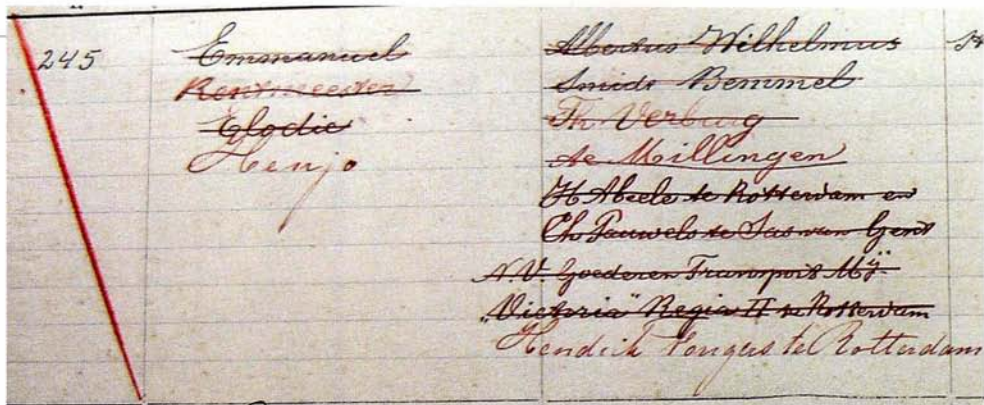 245
Emmanuel
Rentmeester
Elodie
Henjo
Albertus Wilhelmus
Smids Bemmel
Th. Verburg
te Millingen
H Abeele te Rotterdam en
Ch. Pauwels te Sas van Gent
N.V. Goederen Transport Mij.
"Victoria" Regia II te Rotterdam
Hendrik te Rotterdam